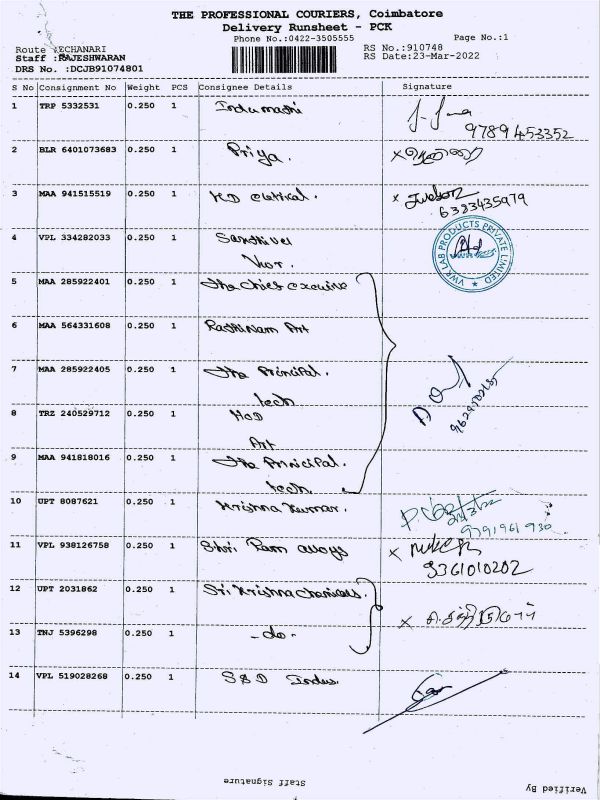 THE PROFESSIONAL COURIERS, Coimbatore
Delivery Runsheet - PCK
Phone No.:0422-3505555
Page No.:1
Route ECHANARI
RS No.:910748
Staff :RAJESHWARAN
RS Date:23-Mar-2022
DRS No. :DCJB91074801
S No Consignment No Weight PCS Consignee Details Signature
1 TRP 5332531 0.250 1 Indumathi
9789453352
2 BLR 6401073683 0.250 1 Priya.
3 MAA 941515519 0.250 1
6383435979
4 VPL 334282033 0.250 1 Santhivel
VWR LAB PRODUCTS PRIVATE LIMITED
5 MAA 285922401 0.250 1 The Chief
6 MAA 564331608 0.250 1 Rathinam Art
7 MAA 285922405 0.250 1 The Principal.
tech
8 TRZ 240529712 0.250 1 HOD
Art
9 MAA 941818016 0.250 1 The Principal.
tech
10 UPT 8087621 0.250 1 Krishna Kumar.
9791961930
11 VPL 938126758 0.250 1 Shri Ram alloys
9361010202
12 UPT 2031862 0.250 1 Sri Krishna Chemicals.
13 TNJ 5396298 0.250 1 - do -
14 VPL 519028268 0.250 1 S&D Indus.
Staff Signature
Verified By